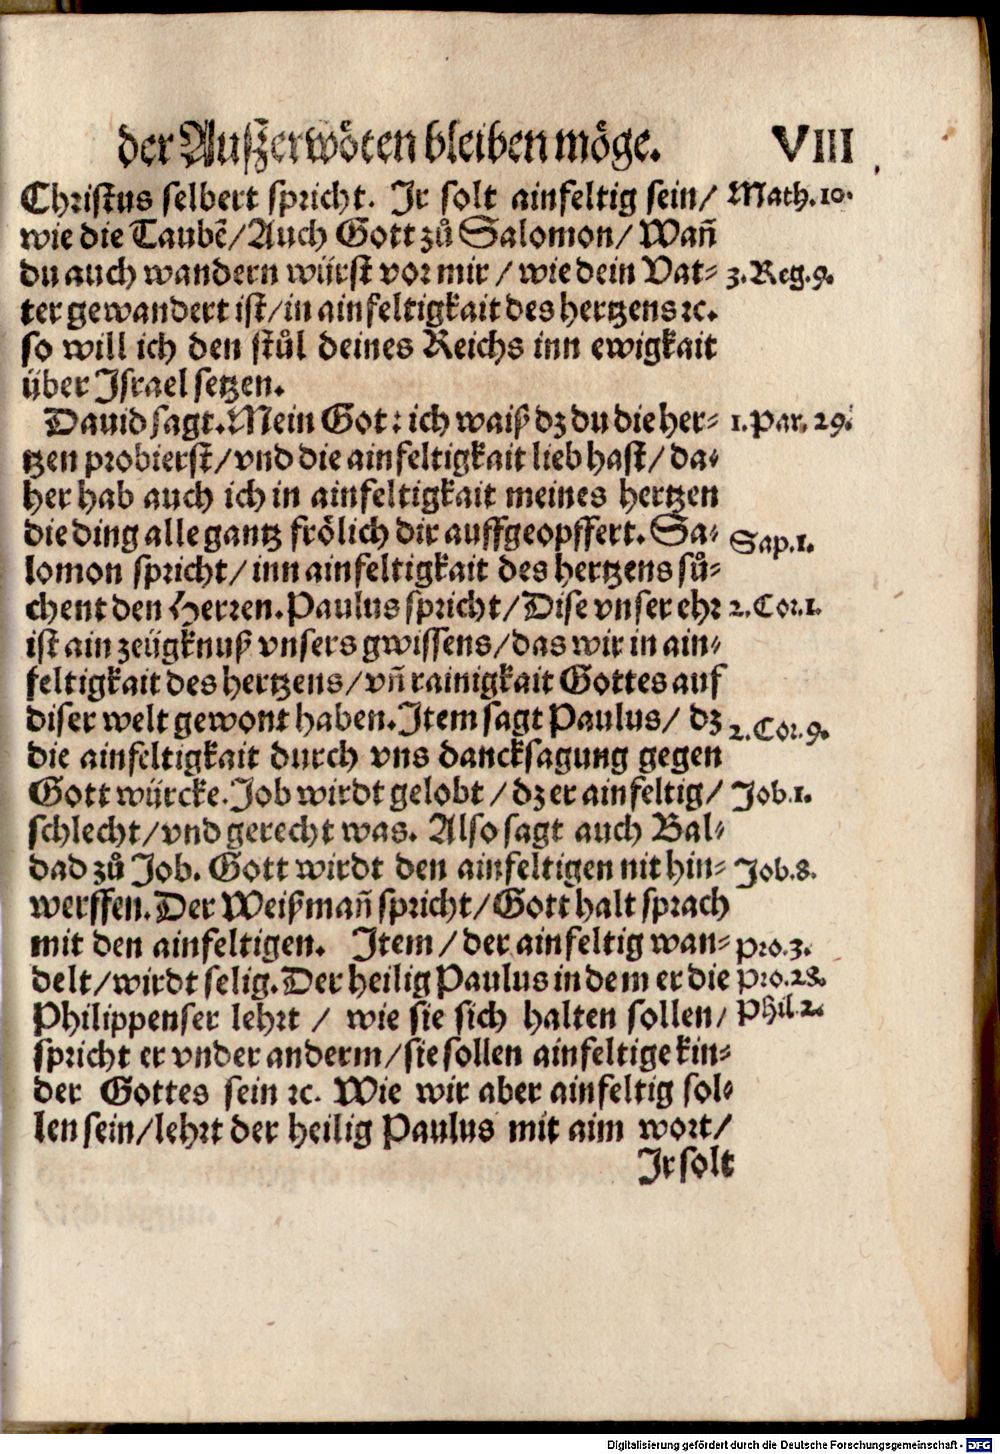 der Auſzerwöten bleiben möge. VIII
Chriſtus ſelbert ſpricht. Ir ſolt ainfeltig ſein/ Math.10.
wie die Taubẽ/Auch Gott zů Salomon/ Wañ
du auch wandern würſt vor mir / wie dein Vat⸗ 3.Reg.9.
ter gewandert iſt/in ainfeltigkait des hertzens ꝛc.
ſo will ich den ſtůl deines Reichs inn ewigkait
über Iſrael ſetzen.
Dauid ſagt. Mein Got: ich waiß dz du die her⸗ 1.Par. 29.
tzen probierſt/vnd die ainfeltigkait lieb haſt/ da⸗
her hab auch ich in ainfeltigkait meines hertzen
die ding alle gantz frölich dir auffgeopffert. Sa⸗ Sap.1.
lomon ſpricht/ inn ainfeltigkait des hertzens ſů⸗
chent den Herren. Paulus ſpricht/ Diſe vnſer ehr 2.Cor.1.
iſt ain zeügknuß vnſers gwiſſens/das wir in ain⸗
feltigkait des hertzens/vñ rainigkait Gottes auf
diſer welt gewont haben. Item ſagt Paulus/ dz 2.Cor.9.
die ainfeltigkait durch vns danckſagung gegen
Gott würcke. Job wirdt gelobt / dz er ainfeltig/ Job.1.
ſchlecht/vnd gerecht was. Alſo ſagt auch Bal⸗
dad zů Job. Gott wirdt den ainfeltigen nit hin⸗ Job.8.
werffen. Der Weißmañ ſpricht/Gott halt ſprach
mit den ainfeltigen. Item / der ainfeltig wan⸗ Pro.3.
delt/wirdt ſelig. Der heilig Paulus in dem er die Pro.28.
Philippenſer lehrt / wie ſie ſich halten ſollen/ Phil.2.
ſpricht er vnder anderm/ſie ſollen ainfeltige kin⸗
der Gottes ſein ꝛc. Wie wir aber ainfeltig ſol⸗
len ſein/lehrt der heilig Paulus mit aim wort/
Ir ſolt
Digitalisierung gefördert durch die Deutsche Forschungsgemeinschaft - DFG